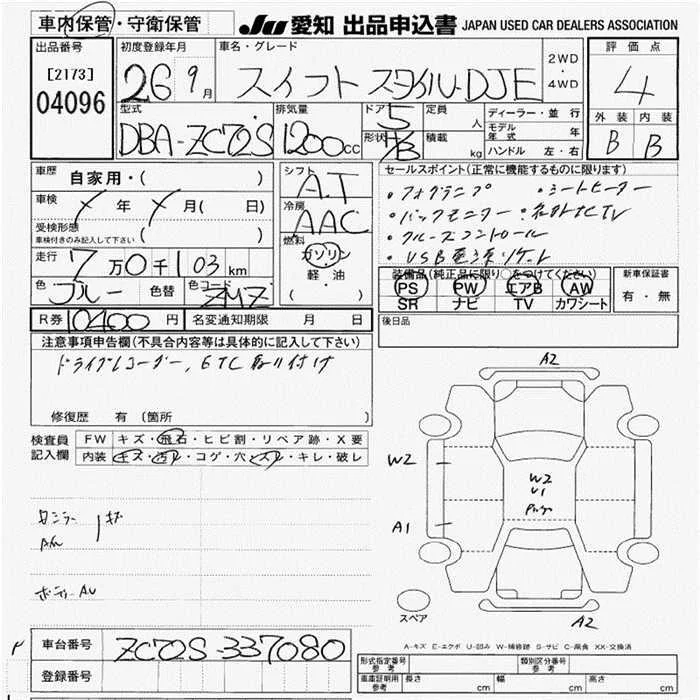 車内保管・守衛保管
JU 愛知 出品申込書 JAPAN USED CAR DEALERS ASSOCIATION
出品番号
[2173]
04096
初度登録年月
26 9月
車名・グレード
スイフト スタイル-DJE
2WD
・
4WD
評価点
4
外装 内装
B B
型式
DBA-ZC72S
排気量
1200cc
ドア 5
形状
定員 人
積載 kg
ディーラー・並行
モデル年式 年
ハンドル 左・右
車歴 自家用・( )
車検 年 月( 日)
受検形態
車検付きのみ記入して下さい ( )
走行 7万0千103km
色 ブルー 色替 色コード ZMZ
シフト
A.T
冷房
AAC
燃料
ガソリン
軽・油
( ・ )
セールスポイント(正常に機能するものに限ります)
・フォグランプ ・シートヒーター
・バックモニター
・クルーズコントロール
・USB電源ソケット
装備品(純正品に限り○をつけてください)
PS PW エアB AW
SR ナビ TV カワシート
新車保証書
有・無
R券 10400円 名変通知期限 月 日
後日品
注意事項申告欄(不具合内容等は具体的に記入して下さい)
ドライブレコーダー, ETC取り付け
修復歴 有(箇所 )
検査員
記入欄
FW キズ・飛石・ヒビ割・リペア跡・X要
内装 キズ・汚れ・コゲ・穴・スレ・キレ・破レ
A2
W2
W2
U1
A1
スペア
A2
ボディー AU
A-キズ E-エクボ U-凹み W-補修跡 S-サビ C-腐食 XX-交換済
車台番号 ZC72S-337080
登録番号
形式指定番号
参考
類別区分番号
参考
車庫証明用
参考
長さ cm 幅 cm 高さ cm